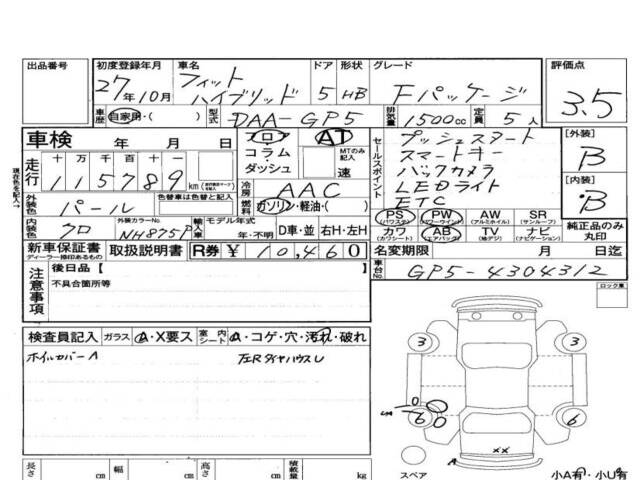 出品番号 初度登録年月 車名 ドア 形状 グレード 評価点
27年10月 フィット ハイブリッド 5 HB Fパッケージ 3.5
車歴 自家用・( ) 型式 DAA-GP5 排気量 1500cc 定員 5人
車検 年 月 日 フロア コラム ダッシュ AT MTのみ記入 速
セールスポイント プッシュスタート
スマートキー
バックカメラ
LEDライト
ETC
[外装] B
[内装] B
現在色を記入→
走行 十万千百十一
115789 km
冷房 AAC
外装色 パール 色替車は色替と記入 燃料 ガソリン・軽油・( )
PS (パワステ) PW (パワーウィンド) AW (アルミホイル) SR (サンルーフ)
カワ (カワシート) AB (エアバック) TV (地デジ) ナビ (ナビゲーション)
純正品のみ丸印
内装色 クロ 外装カラーNo. NH875P 輸入車 モデル年式 年・不明 D車・並 右H・左H
新車保証書 ディーラー捺印あるもの 取扱説明書 R券 ¥10,460
名変期限 月 日迄
車台No. GP5-4304312
注意事項 後日品 [ ]
不具合箇所等
ロック素
検査員記入 ガラス A・X要ス 室内シート A・コゲ・穴・汚れ・破れ
ホイルカバーA 左RタイヤハウスU
3 3
6 6
A XX
スペア 小A有・小U有
長さ cm 幅 cm 高さ cm 積載量 kg